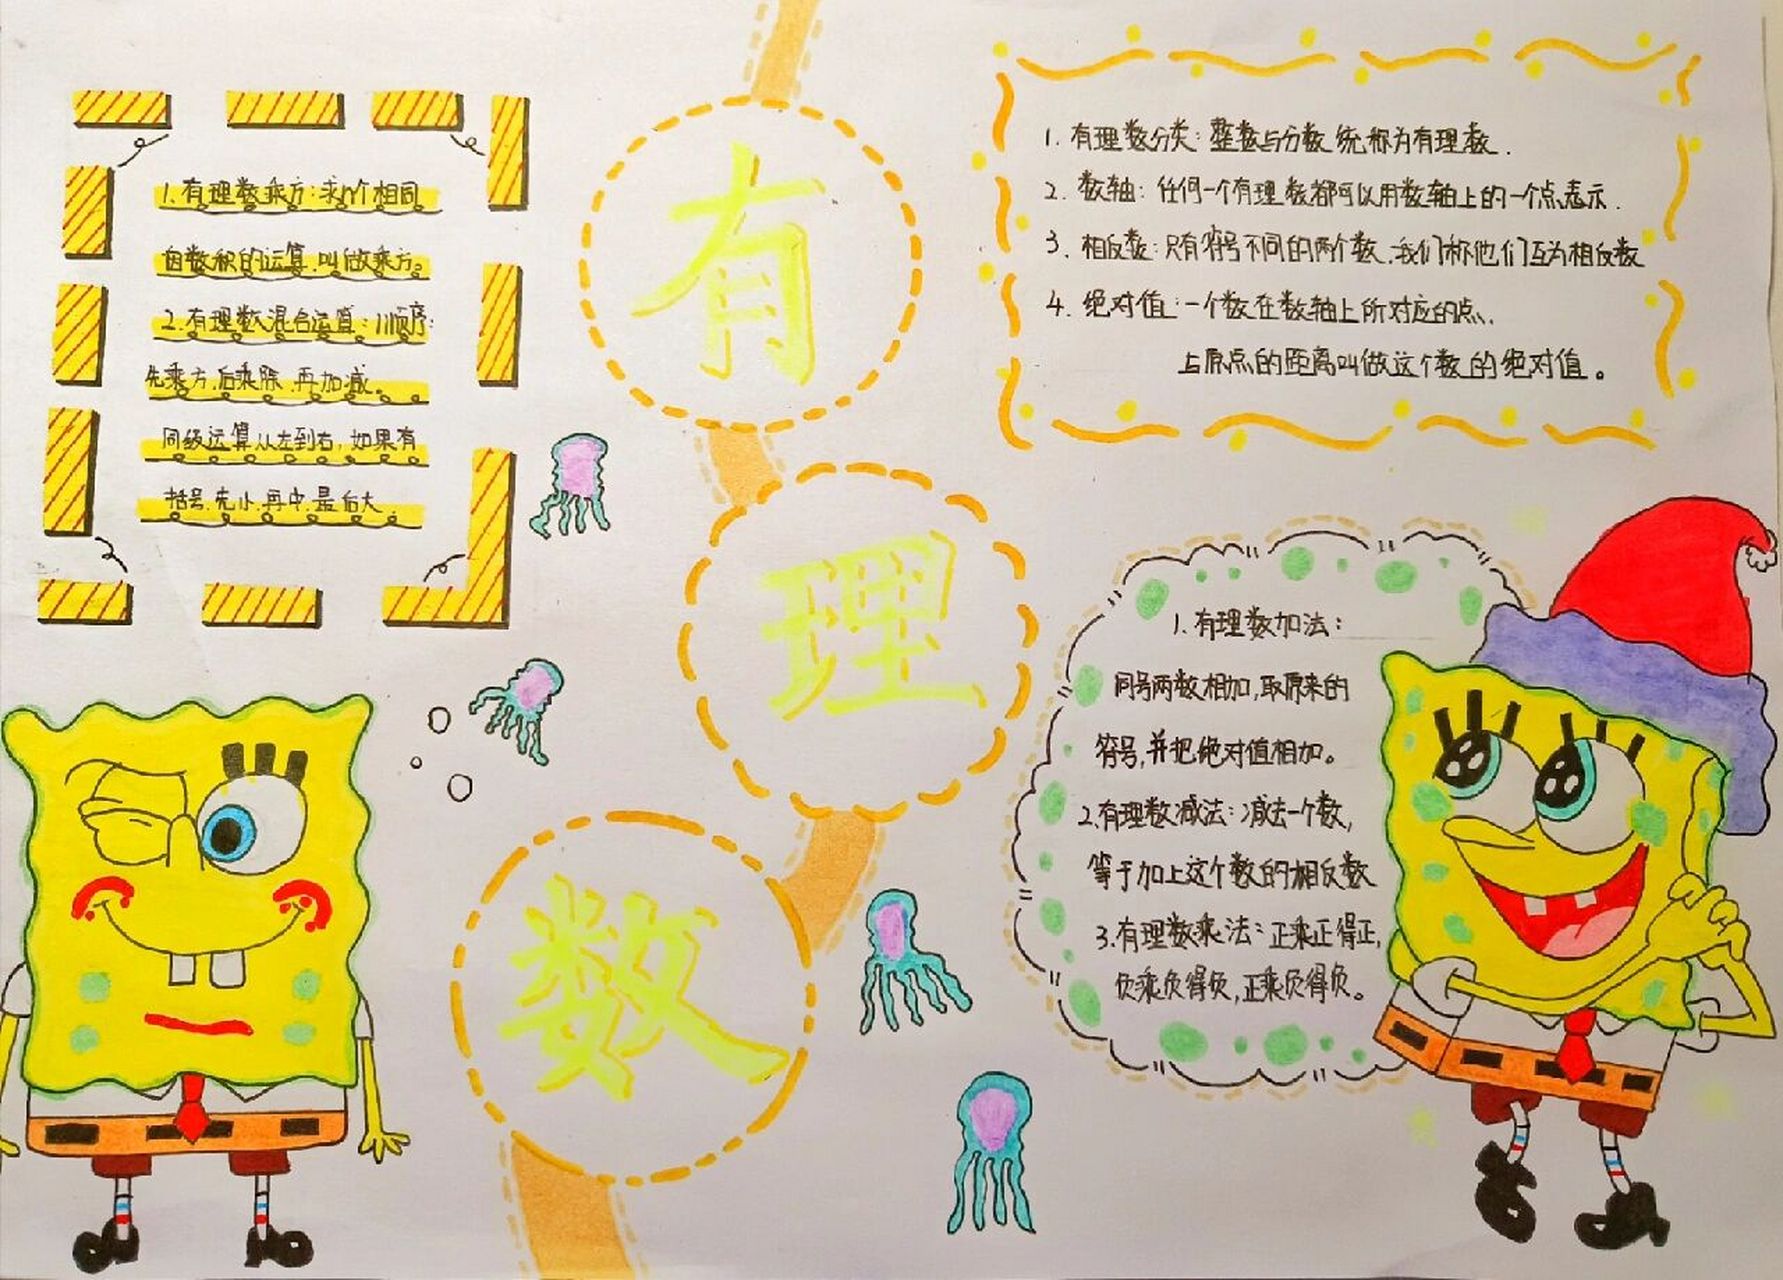 1.有理数乘方:求n个相同
因数积的运算.叫做乘方。
2.有理数混合运算:1)顺序:
先乘方.后乘除.再加减。
同级运算从左到右,如果有
括号.先小.再中.最后大.
有
理
数
1.有理数分类:整数与分数统称为有理数.
2.数轴:任何一个有理数都可以用数轴上的一个点表示.
3.相反数:只有符号不同的两个数.我们称他们互为相反数
4.绝对值:一个数在数轴上所对应的点.
与原点的距离叫做这个数的绝对值。
1.有理数加法:
同号两数相加,取原来的
符号,并把绝对值相加。
2.有理数减法:减去一个数,
等于加上这个数的相反数
3.有理数乘法:正乘正得正,
负乘负得负,正乘负得负。